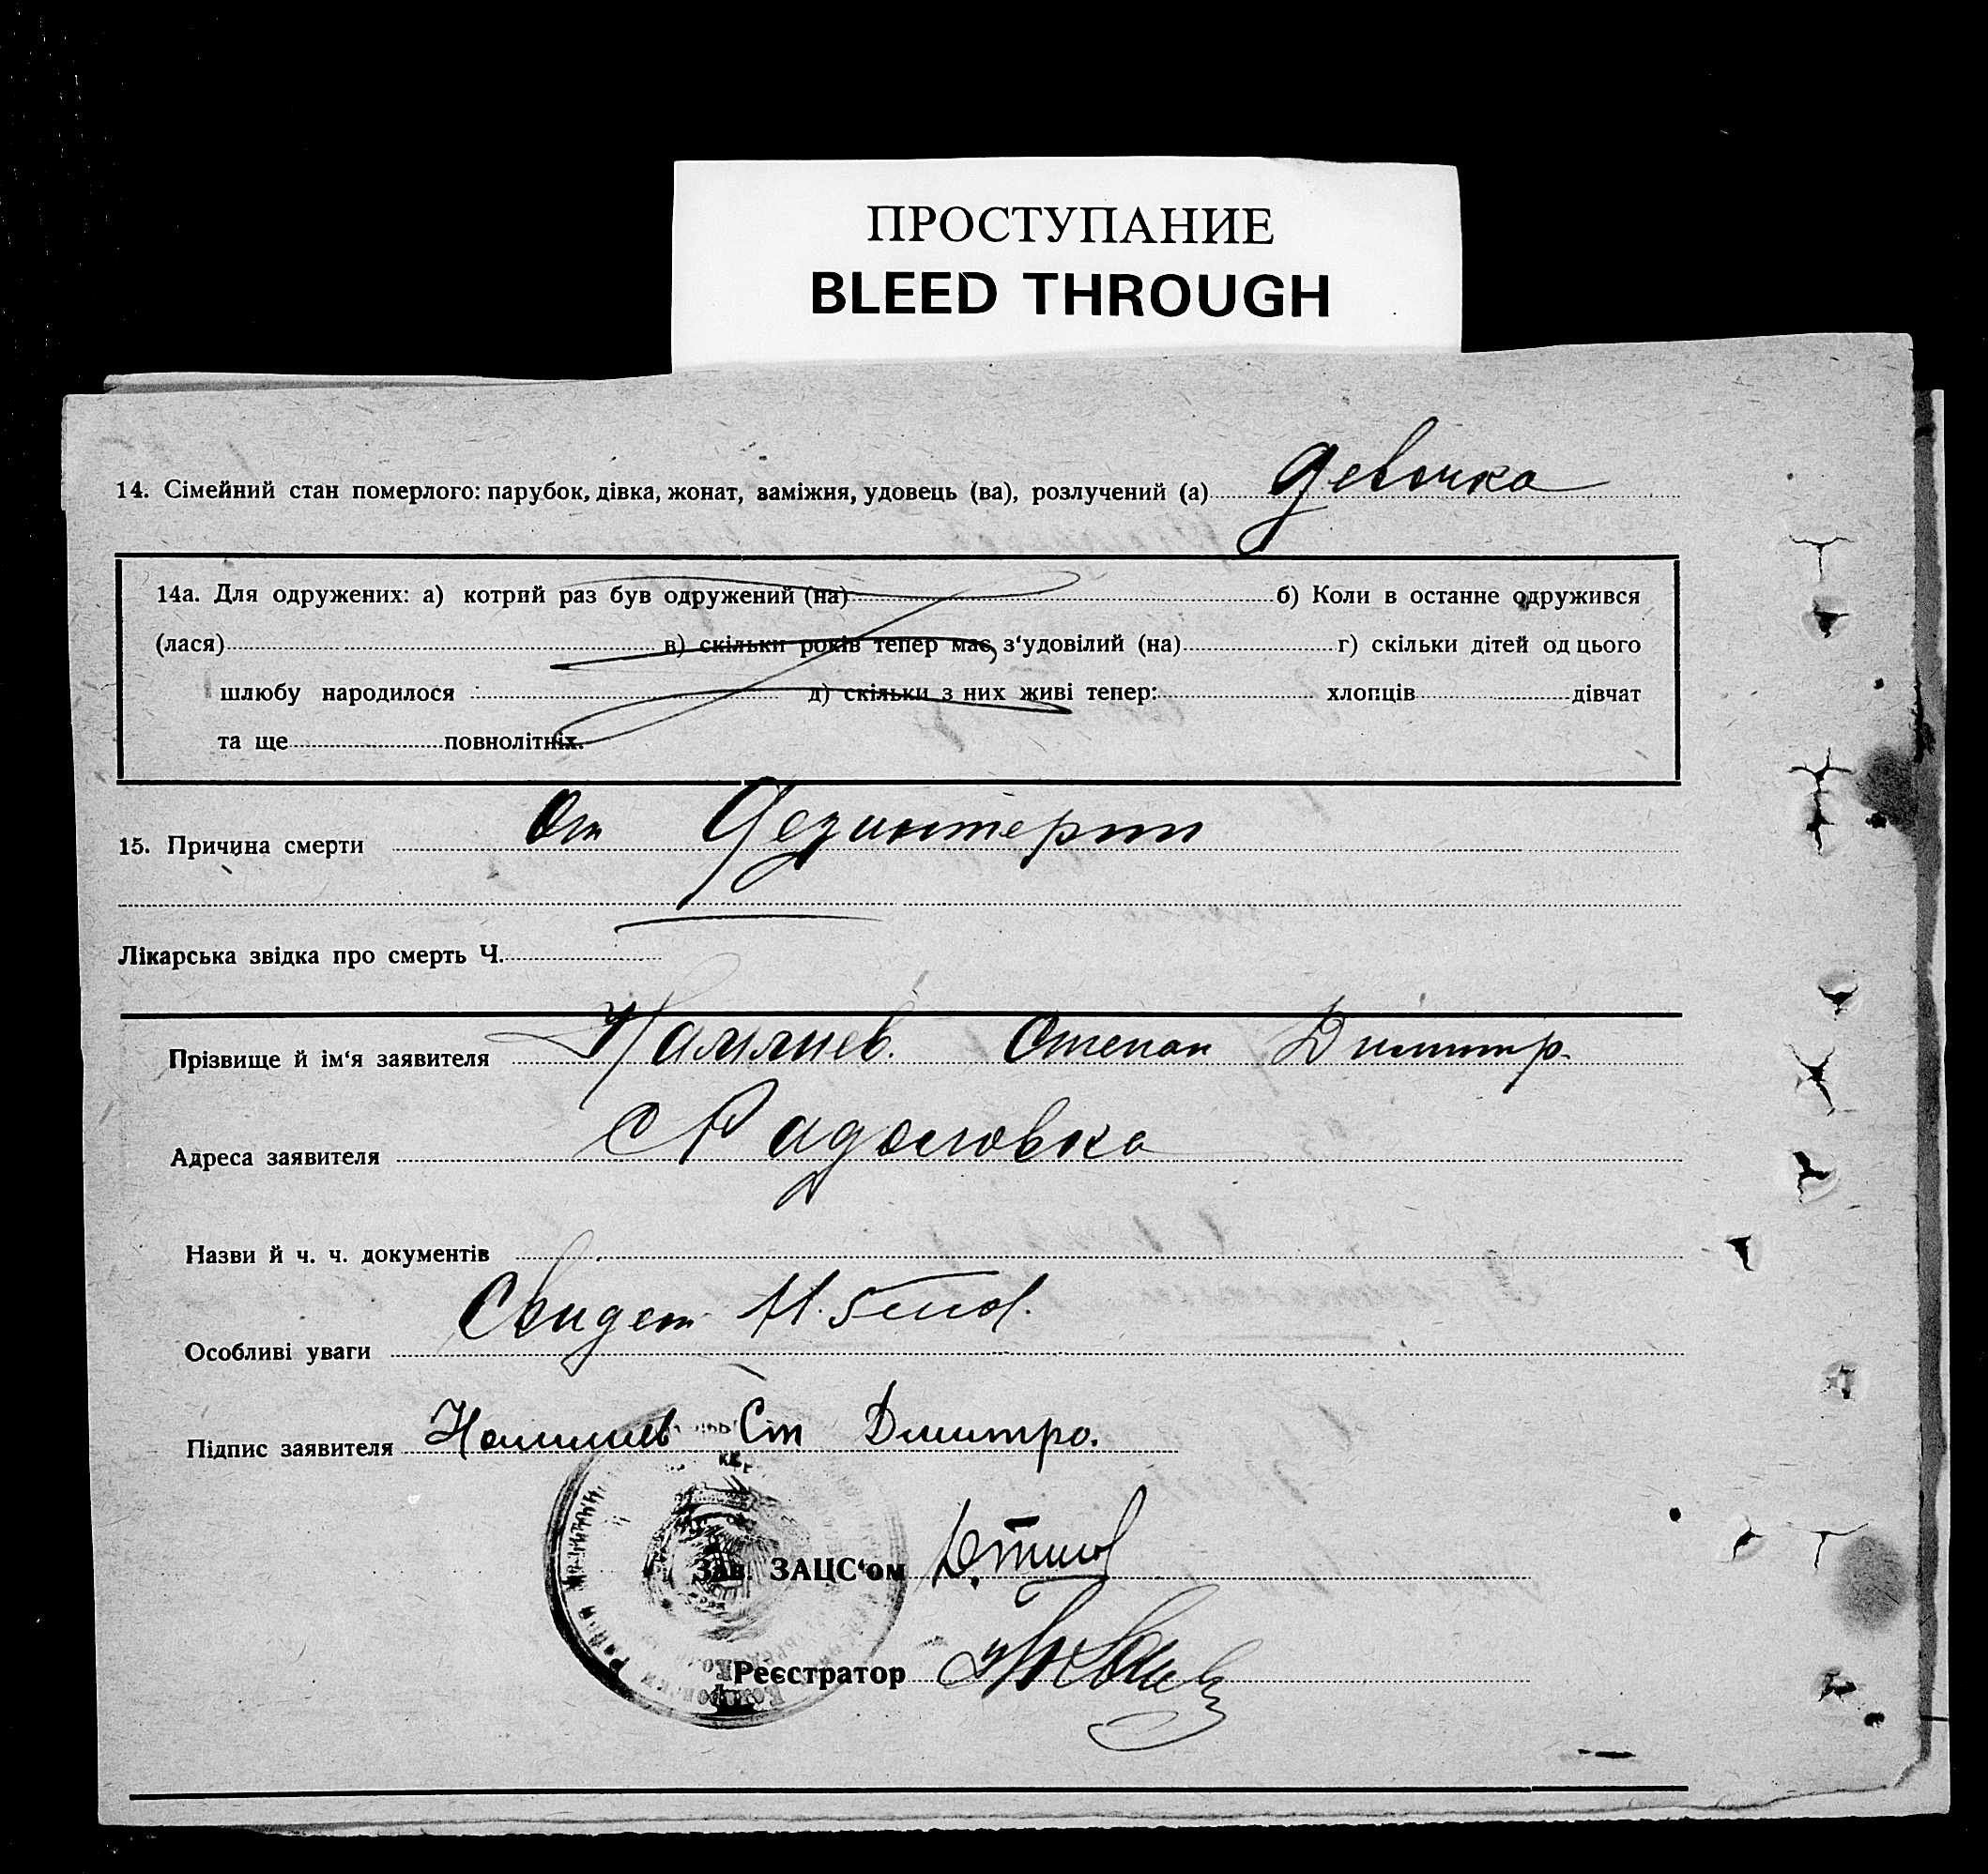 ПРОСТУПАНИЕ
BLEED THROUGH
14. Сімейний стан померлого: парубок, дівка, жонат, заміжня, удовець (ва), розлучений (а) девочка
14а. Для одружених: а) котрий раз був одружений (на) б) Коли в останне одружився
(лася) в) скільки років тепер має, з‘удовілий (на) г) скільки дітей од цього
шлюбу народилося : д) скільки з них живі тепер: хлопців дівчат
та ще повнолітніх.
15. Причина смерти От Дезинтерии
Лікарська звідка про смерть Ч.
Прізвище й ім‘я заявителя Степан Димитр.
Адреса заявителя с
Назви й ч. ч. документів
Свидет
Особливі уваги
Підпис заявителя Ст Дмитро.
Зав. ЗАЦС‘ом
Реєстратор